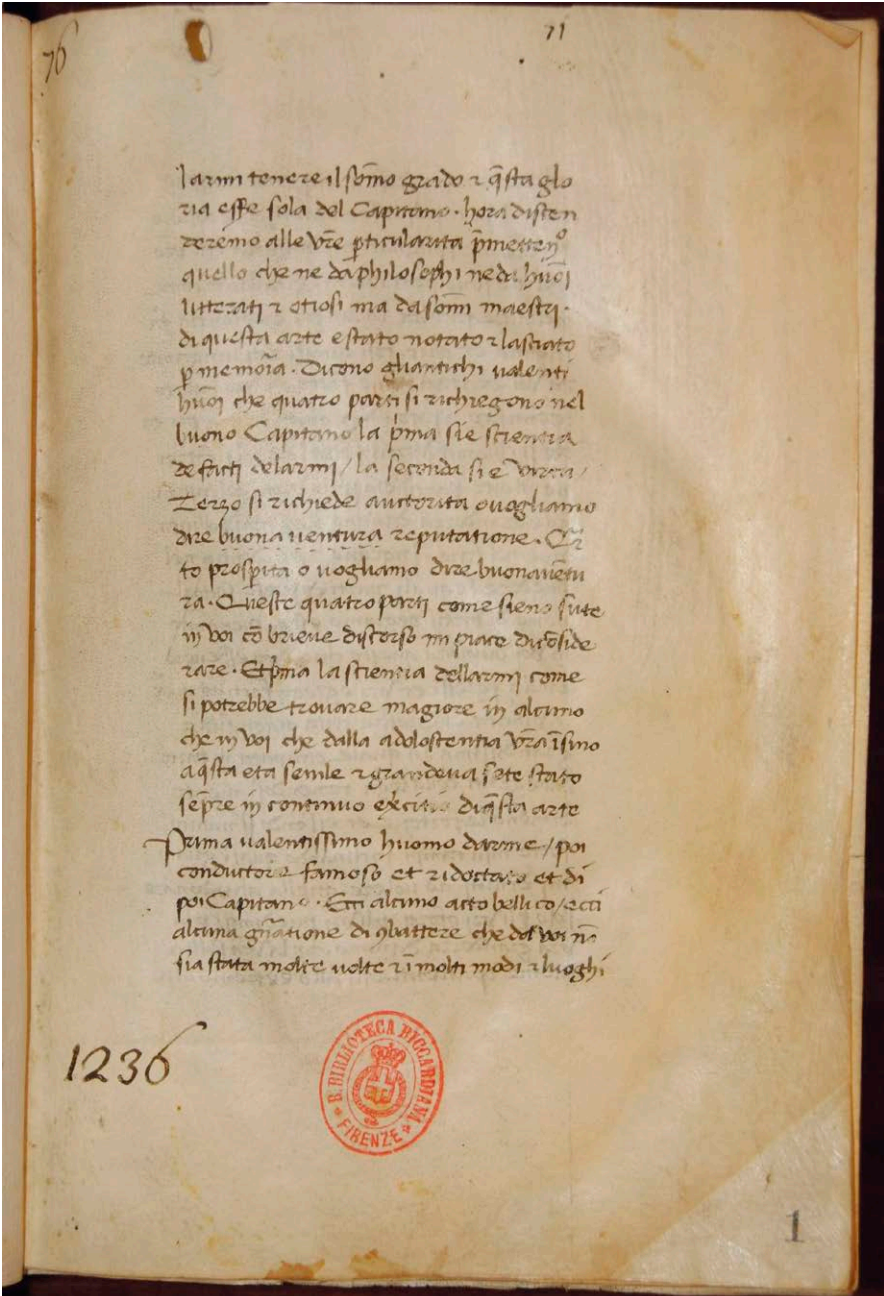 71
76
larmi tenere il so̅mo grado ⁊ q̅sta glo
ria esse sola del Capitano · hora disten
deremo alle vr̅e p̲ticularita p̅metten̅º
quello che ne da philosophi ne da huo̅i
litterati ⁊ otiosi ma da so̅mi maestri ·
di questa arte e stato notato ⁊ lasciato
p̲ memoria · Dicono gliantichi ualenti
huo̅i che quatro parti si richiegono nel
buono Capitano la p̅ma sie scientia
de facti delarmi / la seconda si e virtu /
Terzo si richiede auctorita o uogliamo
dire buona uentura reputatione · Qr̅
to prosp̲ita o uogliamo dire buonaue̅tu
ra · Queste quatro parti come sieno sute
in voi co̅ brieue discorso mi piace dico̅side
rare · Et p̅ma la scientia dellarmi come
si potrebbe trouare magiore in alcuno
che in voi che dalla adoloscentia vr̅a i̅sino
a q̅sta eta senile ⁊ grandeua sete stato
sep̅re in continuo ex̅citio di q̅sta arte
Prima ualentissimo huomo darme / poi
conductore famoso et ridoctato et di
poi Capitano · Ecci alcuno acto bellico / ecci
alcuna gn̅atione di ꝯbattere che da voi n̅
sia stata molte uolte ⁊ i̅ molti modi ⁊ luoghi
1236
R. BIBLIOTECA RICCARDIANA
FIRENZE
1